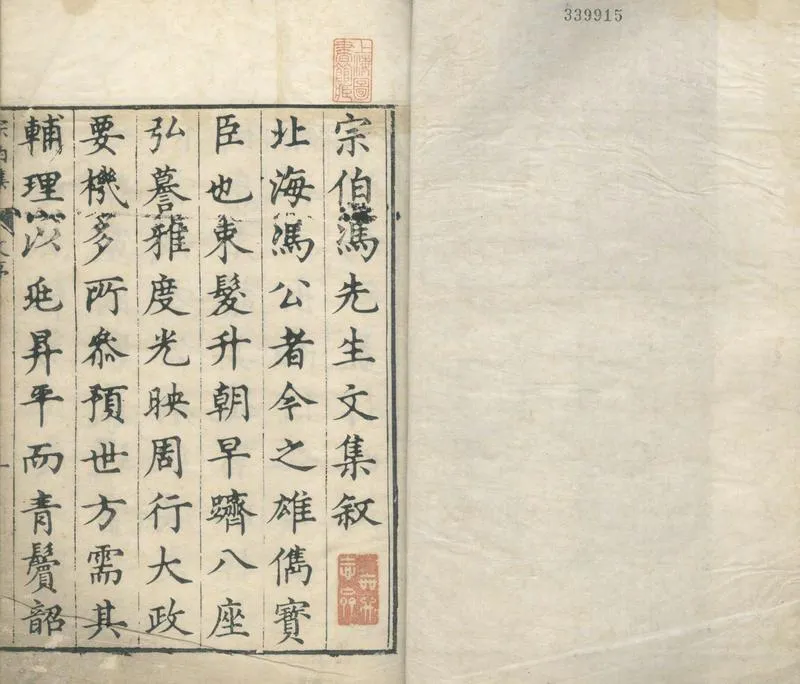 339915
上海圖書館藏
宗伯馮先生文集叙
北海馮公者今之雄儁寶
臣也束髮升朝早躋八座
弘謩雅度光映周行大政
要機多所叅預世方需其
輔理以延昇平而青鬢韶
宗伯集
文序
一